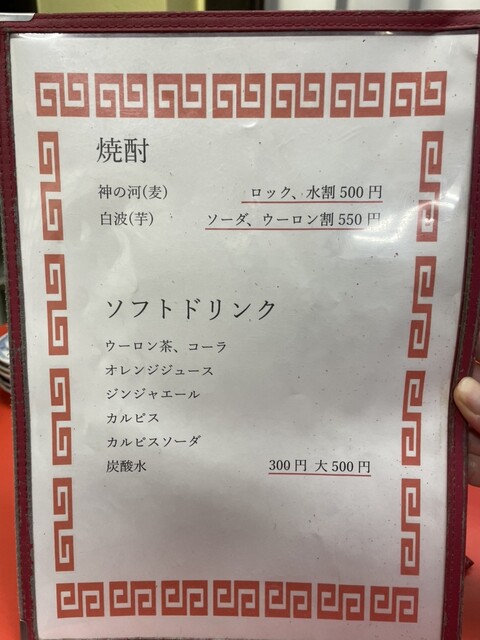 焼酎
神の河(麦) ロック、水割 500 円
白波(芋) ソーダ、ウーロン割 550 円
ソフトドリンク
ウーロン茶、コーラ
オレンジジュース
ジンジャエール
カルピス
カルピスソーダ
炭酸水 300 円 大 500 円